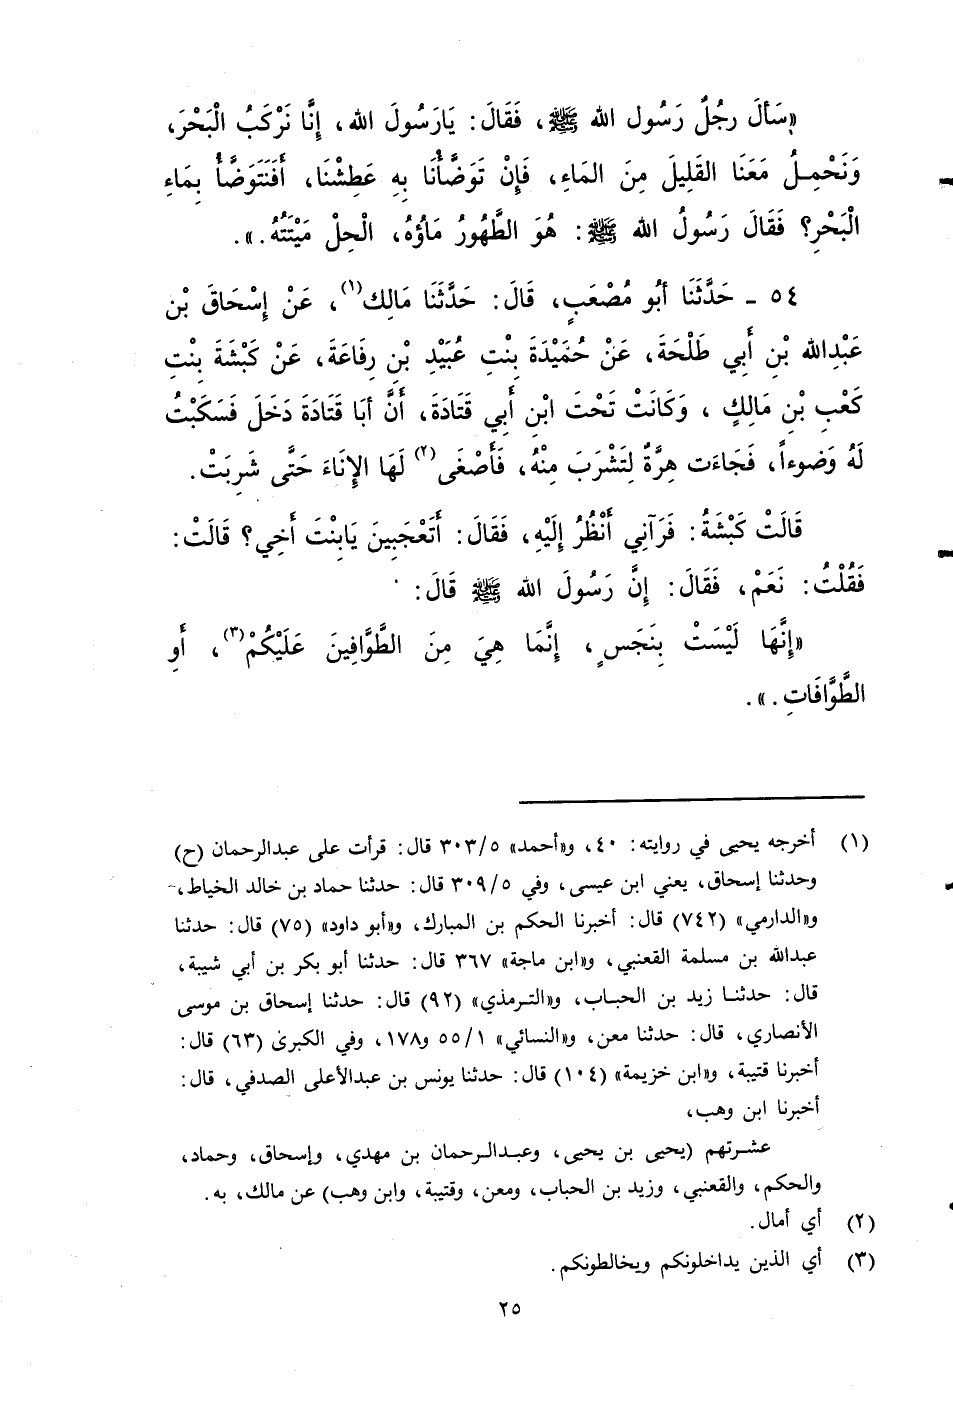 «سَأَلَ رجُلٌ رَسُول الله ﷺ، فَقَالَ: يَارَسُولَ الله، إِنَّا نَرْكَبُ الْبَحْرَ،
وَنَحْمِلُ مَعَنَا القَلِيلَ مِنَ المَاءِ، فَإِنْ تَوَضَّأْنَا بِهِ عَطِشْنَا، أَفَنَتَوَضَّأُ بِمَاءِ
الْبَحْرِ؟ فَقَالَ رَسُولُ الله ﷺ: هُوَ الطَّهُورُ مَاؤُهُ، الْحِلُ مَيْتَتُهُ.».
٥٤ - حَدَّثَنَا أبُو مُصْعَبٍ، قَالَ: حَدَّثَنَا مَالِك(١)، عَنْ إِسْحَاقَ بْن
عَبْدِالله بْنِ أَبِي طَلْحَةَ، عَنْ حُمَيْدَةَ بِنْتِ عُبَيْدِ بْنِ رِفَاعَةَ، عَنْ كَبْشَةَ بِنْتِ
كَعْبِ بْنِ مَالِكٍ، وَكَانَتْ تَحْتَ ابْنِ أَبِي قَتَادَةَ، أَنَّ أبَا قَتَادَةَ دَخَلَ فَسَكَبْتُ
لَهُ وَضوءاً، فَجَاءَت هِرَّةٌ لِتَشْرَبَ مِنْهُ، فَأَصْغَى(٢) لَهَا الإِنَاءَ حَتَّى شَرِبَتْ.
قَالَتْ كَبْشَةُ: فَرَآنِي أَنْظُرُ إِلَيْهِ، فَقَالَ: أَتَعْجَبِينَ يَابِنْتَ أخِي؟ قَالَتْ:
فَقُلْتُ: نَعَمْ، فَقَالَ: إِنَّ رَسُولَ الله ﷺ قَالَ:
«إِنَّهَا لَيْسَتْ بِنَجَسٍ، إِنَّمَا هِيَ مِنَ الطَّوَّافِينَ عَلَيْكُمْ(٣)، أَوِ
الطَّوَّافَاتِ.».
(١) أخرجه يحيى في روايته: ٤٠، و«أحمد» ٣٠٣/٥ قال: قرأت على عبدالرحمان (ح)
وحدثنا إسحاق، يعني ابن عيسى، وفي ٣٠٩/٥ قال: حدثنا حماد بن خالد الخياط،
و«الدارمي» (٧٤٢) قال: أخبرنا الحكم بن المبارك، و«أبو داود» (٧٥) قال: حدثنا
عبدالله بن مسلمة القعنبي، و«ابن ماجة» ٣٦٧ قال: حدثنا أبو بكر بن أبي شيبة،
قال: حدثنا زيد بن الحباب، و«الترمذي» (٩٢) قال: حدثنا إسحاق بن موسى
الأنصاري، قال: حدثنا معن، و«النسائي» ٥٥/١ و١٧٨، وفي الكبرىٰ (٦٣) قال:
أخبرنا قتيبة، و«ابن خزيمة» (١٠٤) قال: حدثنا يونس بن عبدالأعلى الصدفي، قال:
أخبرنا ابن وهب،
عشرتهم (يحيى بن يحيى، وعبدالرحمان بن مهدي، وإسحاق، وحماد،
والحكم، والقعنبي، وزيد بن الحباب، ومعن، وقتيبة، وابن وهب) عن مالك، به.
(٢) أي أمال.
(٣) أي الذين يداخلونكم ويخالطونكم.
٢٥